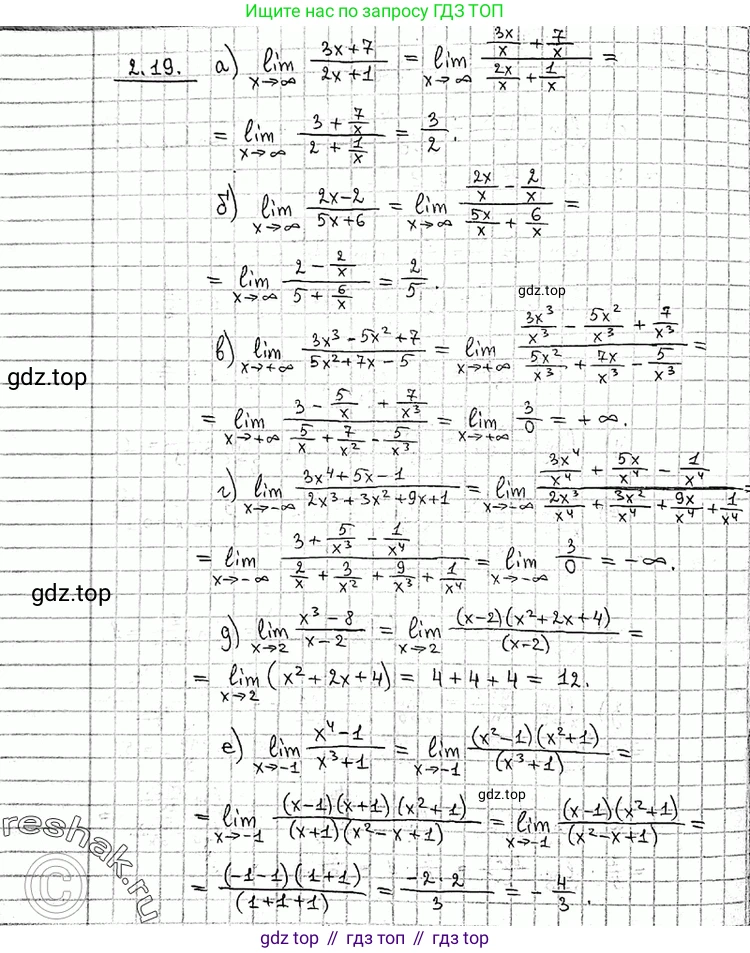 Подпишись по запросу ГДЗ ТОП
2.19. а) lim x→∞ (3x+7)/(2x+1) = lim x→∞ (3x/x + 7/x)/(2x/x + 1/x) =
= lim x→∞ (3 + 7/x)/(2 + 1/x) = 3/2.
б) lim x→∞ (2x-2)/(5x+6) = lim x→∞ (2x/x - 2/x)/(5x/x + 6/x) =
= lim x→∞ (2 - 2/x)/(5 + 6/x) = 2/5.
gdz.top
в) lim x→+∞ (3x³ - 5x² + 7)/(5x² + 7x - 5) = lim x→+∞ (3x³/x³ - 5x²/x³ + 7/x³)/(5x²/x³ + 7x/x³ - 5/x³) =
gdz.top
= lim x→+∞ (3 - 5/x + 7/x³)/(5/x + 7/x² - 5/x³) = lim x→+∞ 3/0 = +∞.
г) lim x→-∞ (3x⁴ + 5x - 1)/(2x³ + 3x² + 9x + 1) = lim x→-∞ (3x⁴/x⁴ + 5x/x⁴ - 1/x⁴)/(2x³/x⁴ + 3x²/x⁴ + 9x/x⁴ + 1/x⁴) =
= lim x→-∞ (3 + 5/x³ - 1/x⁴)/(2/x + 3/x² + 9/x³ + 1/x⁴) = lim x→-∞ 3/0 = -∞.
gdz.top
д) lim x→2 (x³ - 8)/(x-2) = lim x→2 (x-2)(x² + 2x + 4)/(x-2) =
= lim x→2 (x² + 2x + 4) = 4 + 4 + 4 = 12.
е) lim x→-1 (x⁴ - 1)/(x³ + 1) = lim x→-1 (x² - 1)(x² + 1)/(x³ + 1) =
gdz.top
= lim x→-1 (x-1)(x+1)(x² + 1)/(x+1)(x² - x + 1) = lim x→-1 (x-1)(x² + 1)/(x² - x + 1) =
= (-1-1)(1+1)/(1+1+1) = -2·2/3 = -4/3.
reshak.ru
©
gdz.top // гдз топ // gdz.top